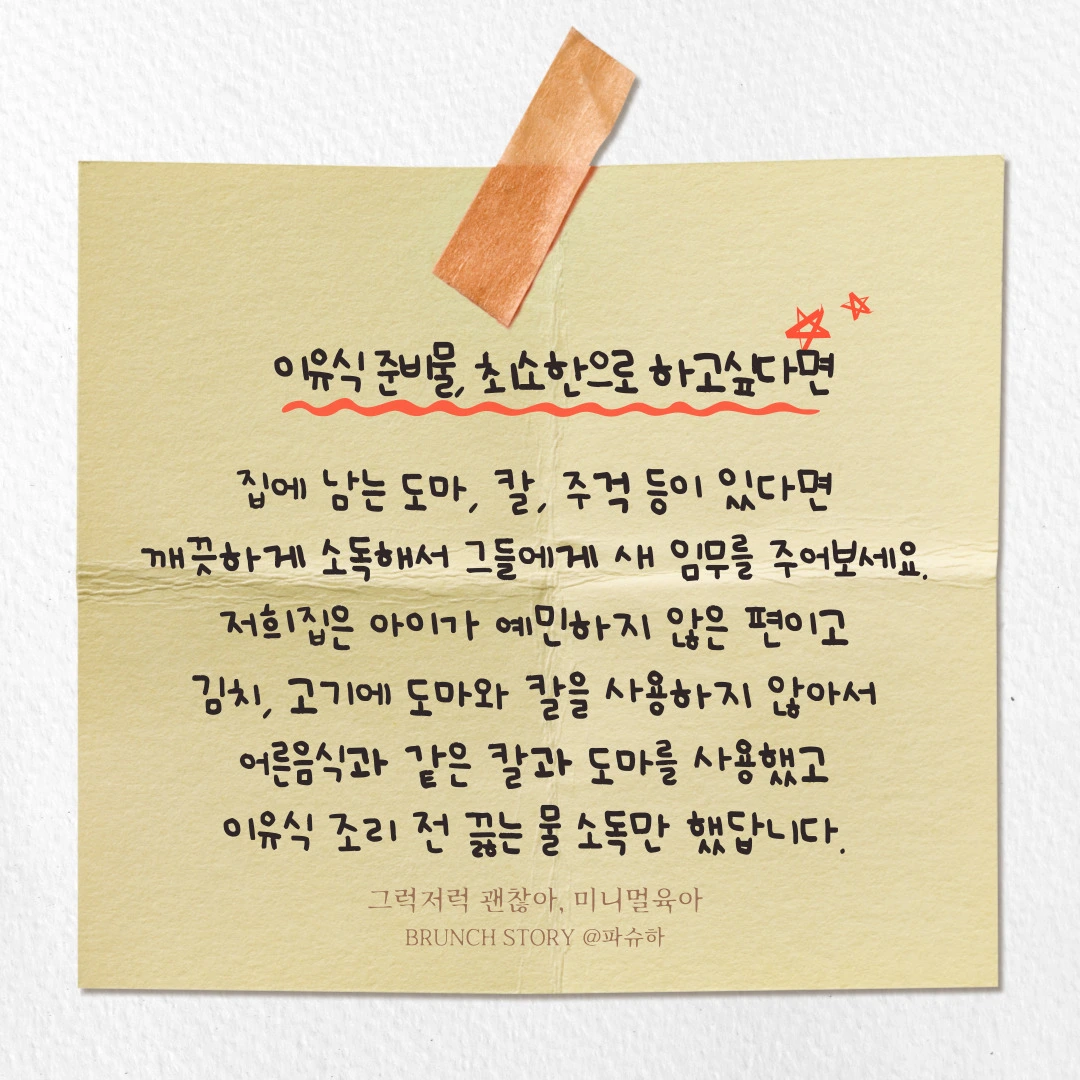 이유식 준비물, 최소한으로 하고싶다면
집에 남는 도마, 칼, 주걱 등이 있다면
깨끗하게 소독해서 그들에게 새 임무를 주어보세요.
저희집은 아이가 예민하지 않은 편이고
김치, 고기에 도마와 칼을 사용하지 않아서
어른음식과 같은 칼과 도마를 사용했고
이유식 조리 전 끓는 물 소독만 했답니다.
그럭저럭 괜찮아, 미니멀육아
BRUNCH STORY @파슈하